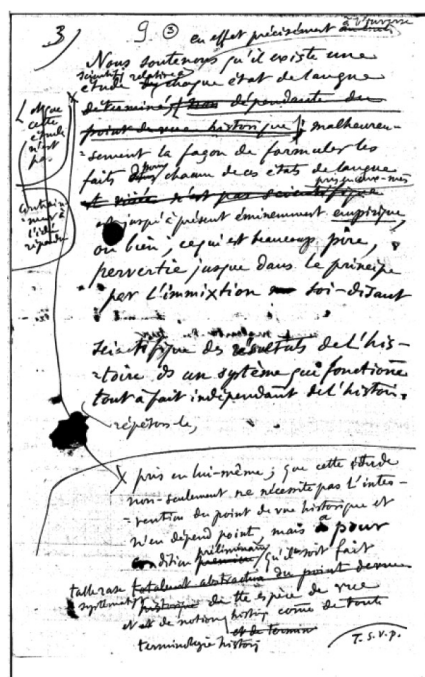 3) 9 ③
en effet précisément à l'inverse
Nous soutenons qu'il existe une
scientifiq relative à
étude chaque état de langue
déterminé dépendante du
point de vue historique malheureu-
-sement la façon de formuler les
faits pour chacun de ces états de langue
jusqu'à présent éminemment empirique,
ou bien, ce qui est beaucoup pire,
pervertie jusque dans le principe
par l'immixtion soi-disant
scientifique des résultats de l'his-
-toire ds un système qui fonctionne
tout à fait indépendant de l'histoire.
répétons-le,
que
cette
étude
n'est
pas
contraire-
ment à
l'idée
répandue
X pris en lui-même ; que cette étude
non-seulement ne nécessite pas l'inter-
-vention du point de vue historique et
n'en dépend point, mais a pour
condition préliminaire qu'il soit fait
table rase totalement abstraction du point de vue
systématiqt historique de tte espèce de vue
et de notion historiq come de toute
terminologie historiq et de termin
T. S. V. P.